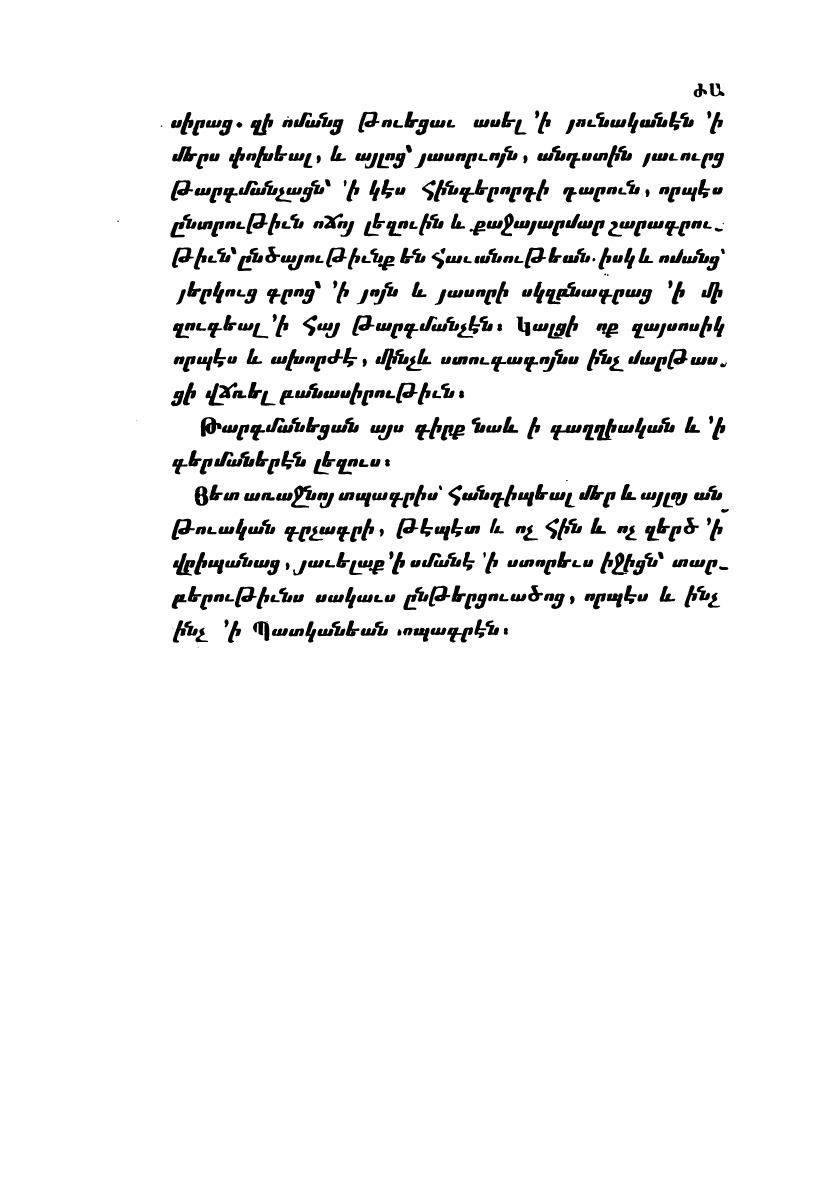 ԺԱ
սիրաց. զի ոմանց թուեցաւ ասել ՚ի յունականէն ՚ի
մերս փոխեալ, և այլոց՝ յասորւոյն, անդստին յաւուրց
թարգմանչացն՝ ՚ի կէս հինգերորդի դարուն, որպէս
ընտրութիւն ոճոյ լեզուին և քաջայարմար շարագրու_
թիւն՝ ընծայութիւնք են հաւանութեան. իսկ և ոմանց՝
յերկուց գրոց՝ ՚ի յոյն և յասորի սկզբնագրաց ՚ի մի
զուգեալ ՚ի հայ թարգմանչէն։ Կալցի ոք զայսոսիկ
որպէս և ախորժէ, մինչև ստուգագոյնս ինչ մարթաս_
ցի վճռել բանասիրութիւն։
Թարգմանեցան այս գիրք նաև ի գաղղիական և ՚ի
գերմաներէն լեզուս։
Յետ առաջնոյ տպագրիս՝ հանդիպեալ մեր և այլոյ ան_
թուական գրչագրի, թէպէտ և ոչ հին և ոչ զերծ ՚ի
վրիպանաց, յաւելաք ՚ի սմանէ ՚ի ստորեւս իջիցն՝ տար_
բերութիւնս սակաւս ընթերցուածոց, որպէս և ինչ
ինչ ՚ի Պատկանեան տպագրէն։